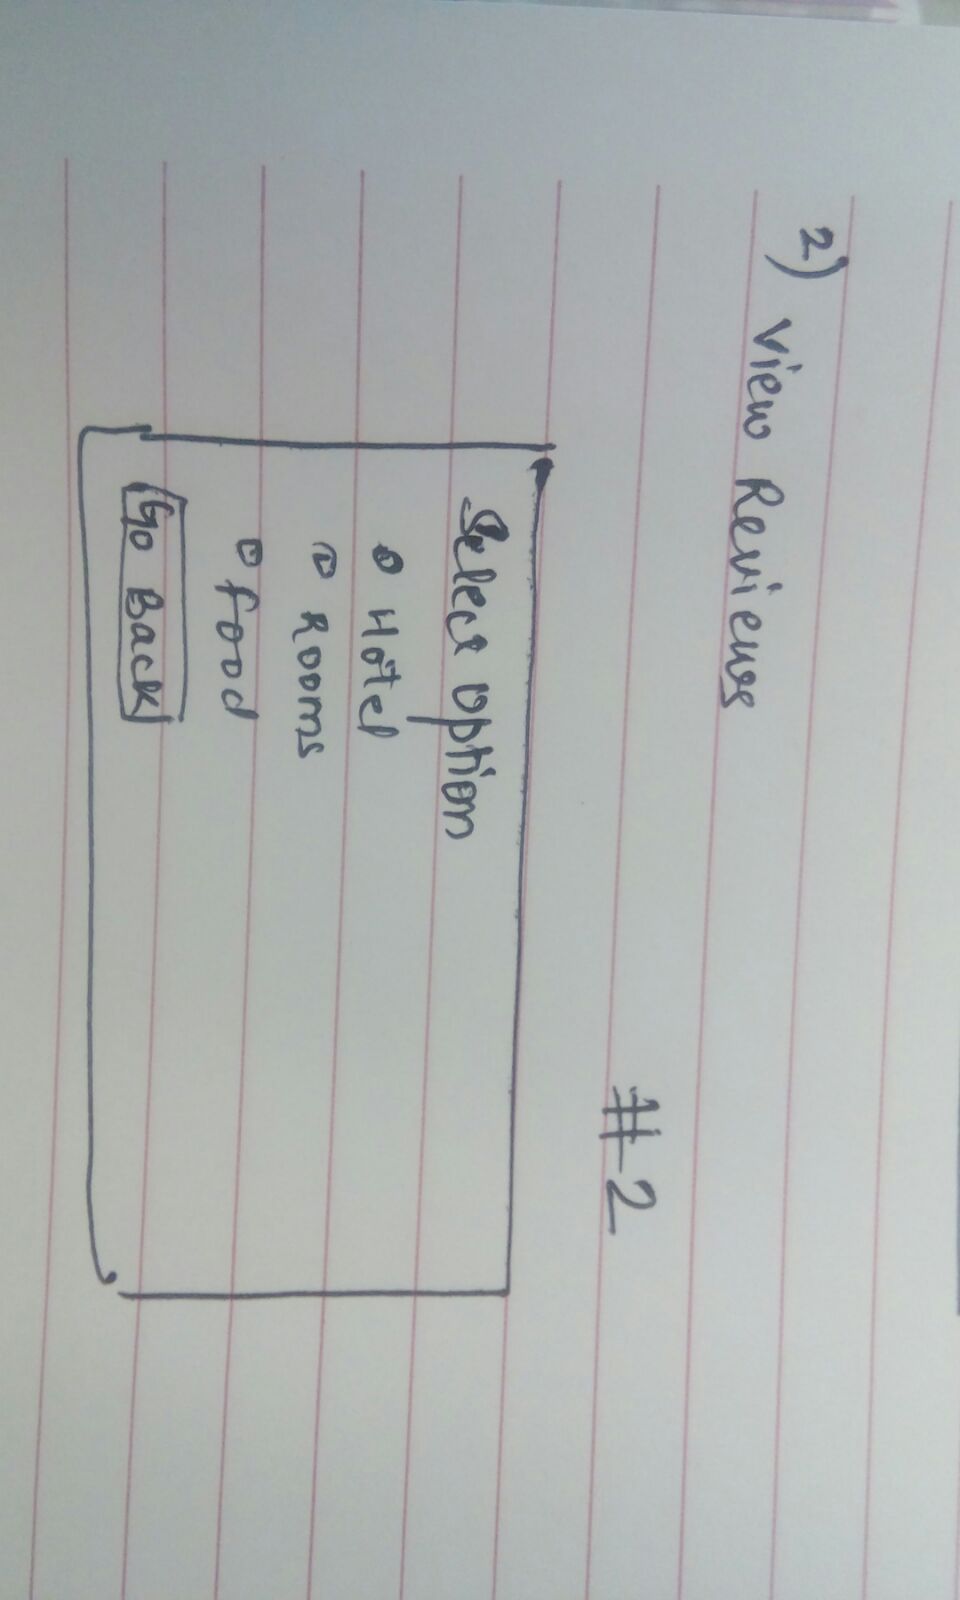 2)
View Reviews
#2
Select Option
Hotel
Rooms
Food
Go Back